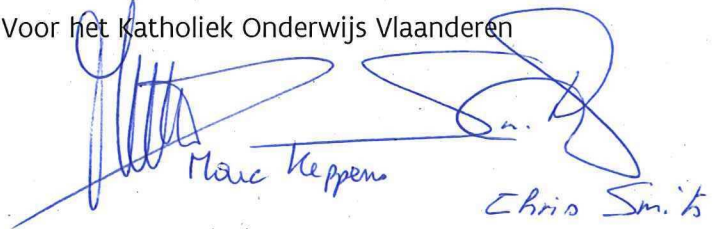 Voor het Katholiek Onderwijs Vlaanderen
Marc Keppens
Chris Smits